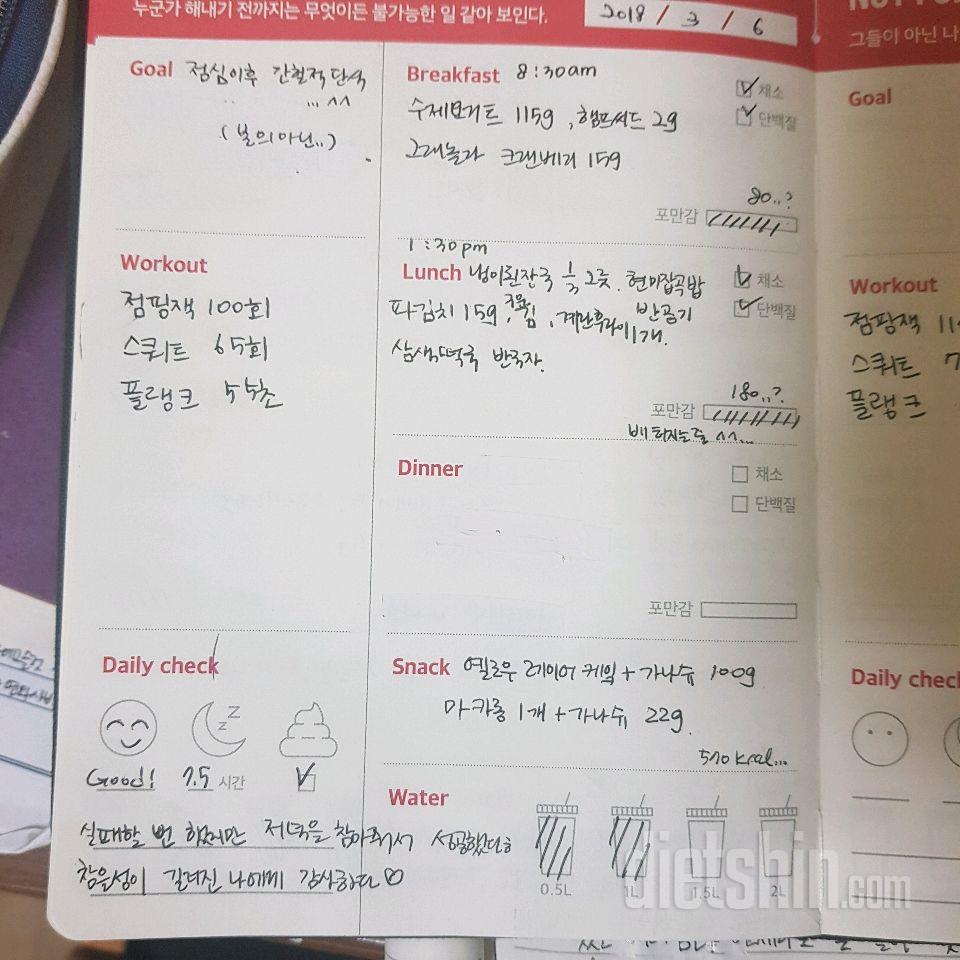 누군가 해내기 전까지는 무엇이든 불가능한 일 같아 보인다.
2018 / 3 / 6
Goal 점심이후 간헐적단식
... ^^
(본의아닌..)
Breakfast 8:30am
채소
단백질
수제요거트 115g, 햄프씨드 2g
그래놀라 크랜베리 15g
80..?
포만감
Workout
점핑잭 100회
스쿼트 65회
플랭크 55초
1:30pm
Lunch 냉이된장국 ½그릇. 현미잡곡밥 반공기
채소
단백질
파김치 15g, 김, 계란후라이1개.
삼색떡국 반국자.
180..?
포만감
배 터지는줄 ^^...
Dinner
채소
단백질
포만감
Daily check
Good! 7.5 시간
Snack 옐로우 레이어 케잌 + 가나슈 100g
마카롱 1개 + 가나슈 22g
510 kcal...
Water
0.5L 1L 1.5L 2L
실패할 뻔 했지만 저녁을 참아줘서 성공했다
참을성이 길러진 나에게 감사하다♡
dietshin.com
그들이 아닌 나
Goal
Workout
점핑잭 11
스쿼트 7
플랭크
Daily chec